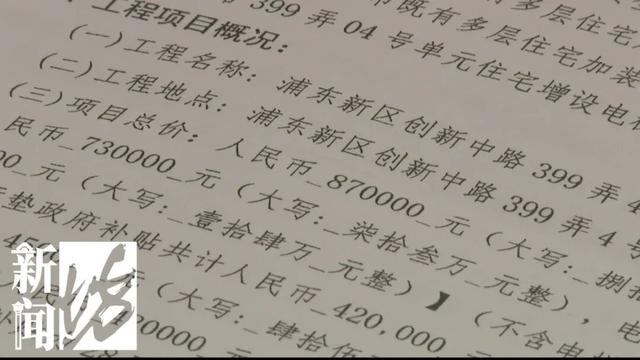 市既有多层住宅加装
399 弄 04 号单元住宅增设电
工程项目概况：
(一)工程名称：浦东新区创新中路 399 弄 4
(二)工程地点：浦东新区创新中路 399 弄 4 号
(三)项目总价：人民币_870000_元（大写：_捌拾
民币_730000_元（大写：_柒拾叁万_元整），电
00_元（大写：_壹拾肆万_元整）】（不含电
垫政府补贴共计人民币_420,000
元（大写：_肆拾伍
新闻坊